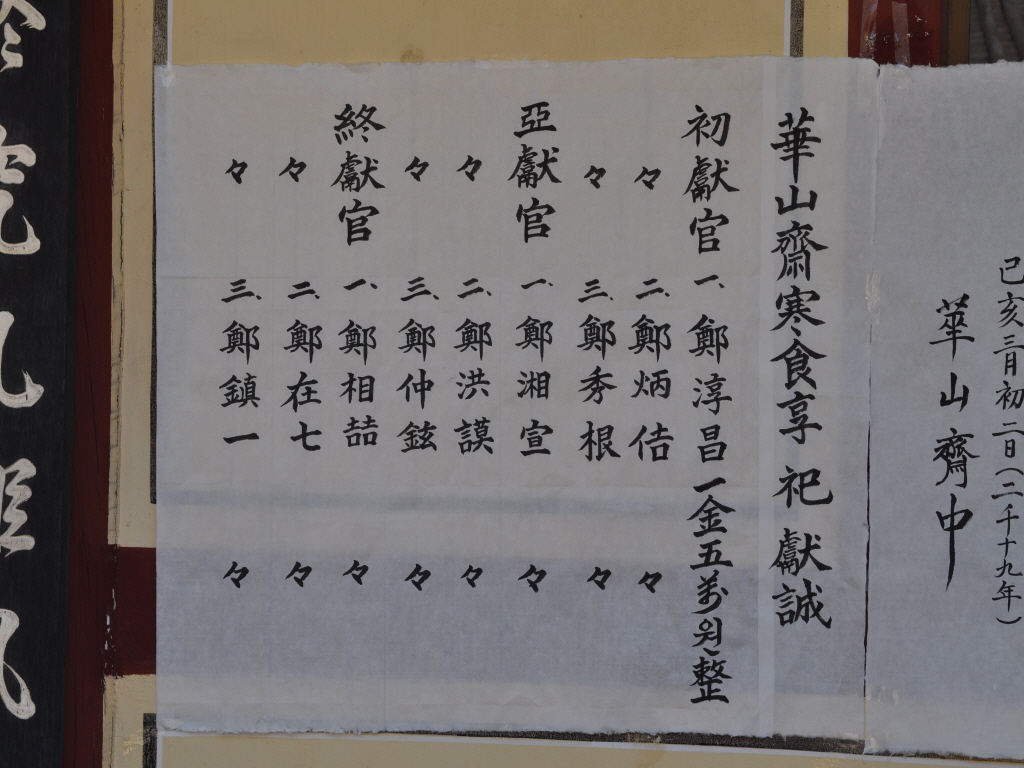 己亥三月初二日(二千十九年)
華山齋中
華山齋寒食享祀獻誠
初獻官 一、鄭淳昌 一金五萬원整
々 二、鄭炳佶 々
々 三、鄭秀根 々
亞獻官 一、鄭湘宣 々
々 二、鄭洪謨 々
々 三、鄭仲鉉 々
終獻官 一、鄭相喆 々
々 二、鄭在七 々
々 三、鄭鎮一 々